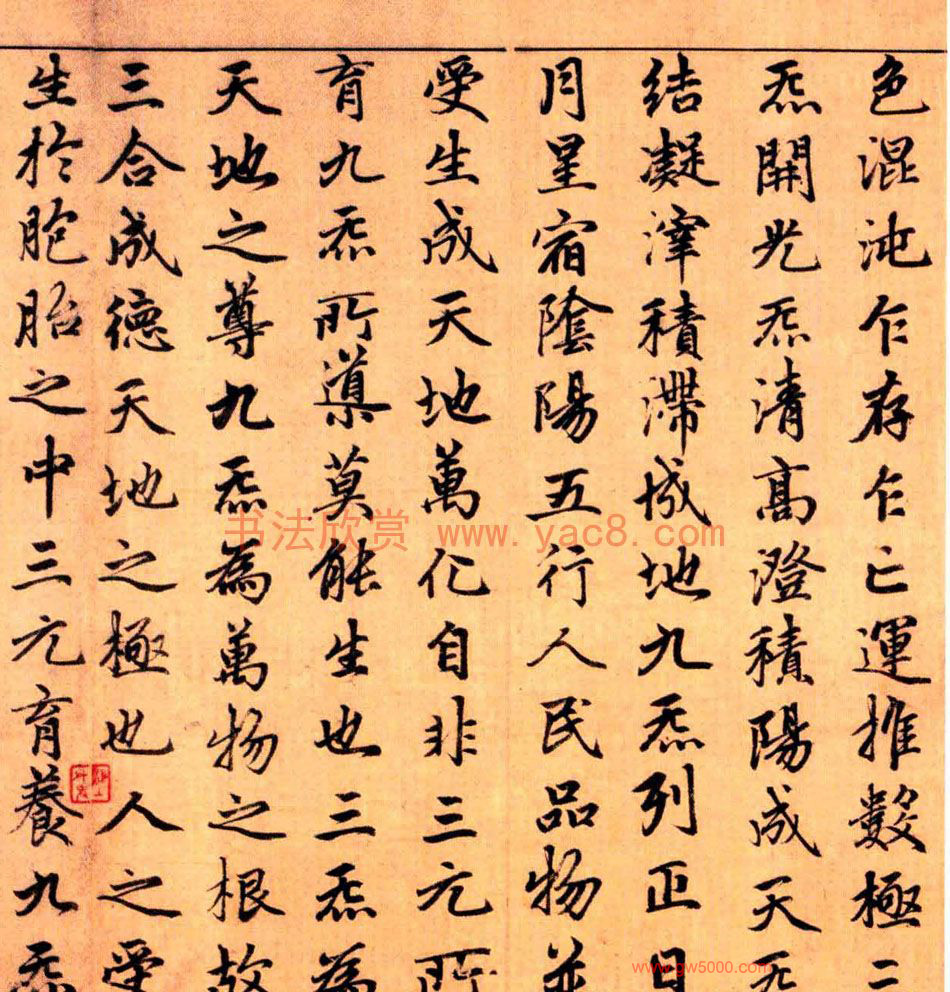 色混沌乍存乍亡運推數極三
炁開光炁清高澄積陽成天炁
結凝滓積滯成地九炁列正日
月星宿陰陽五行人民品物並
受生成天地萬化自非三元所
育九炁所導莫能生也三炁為
天地之尊九炁為萬物之根故
三合成德天地之極也人之受
生於胞胎之中三元育養九炁
书法欣赏 www.yac8.com
www.gw5000.com